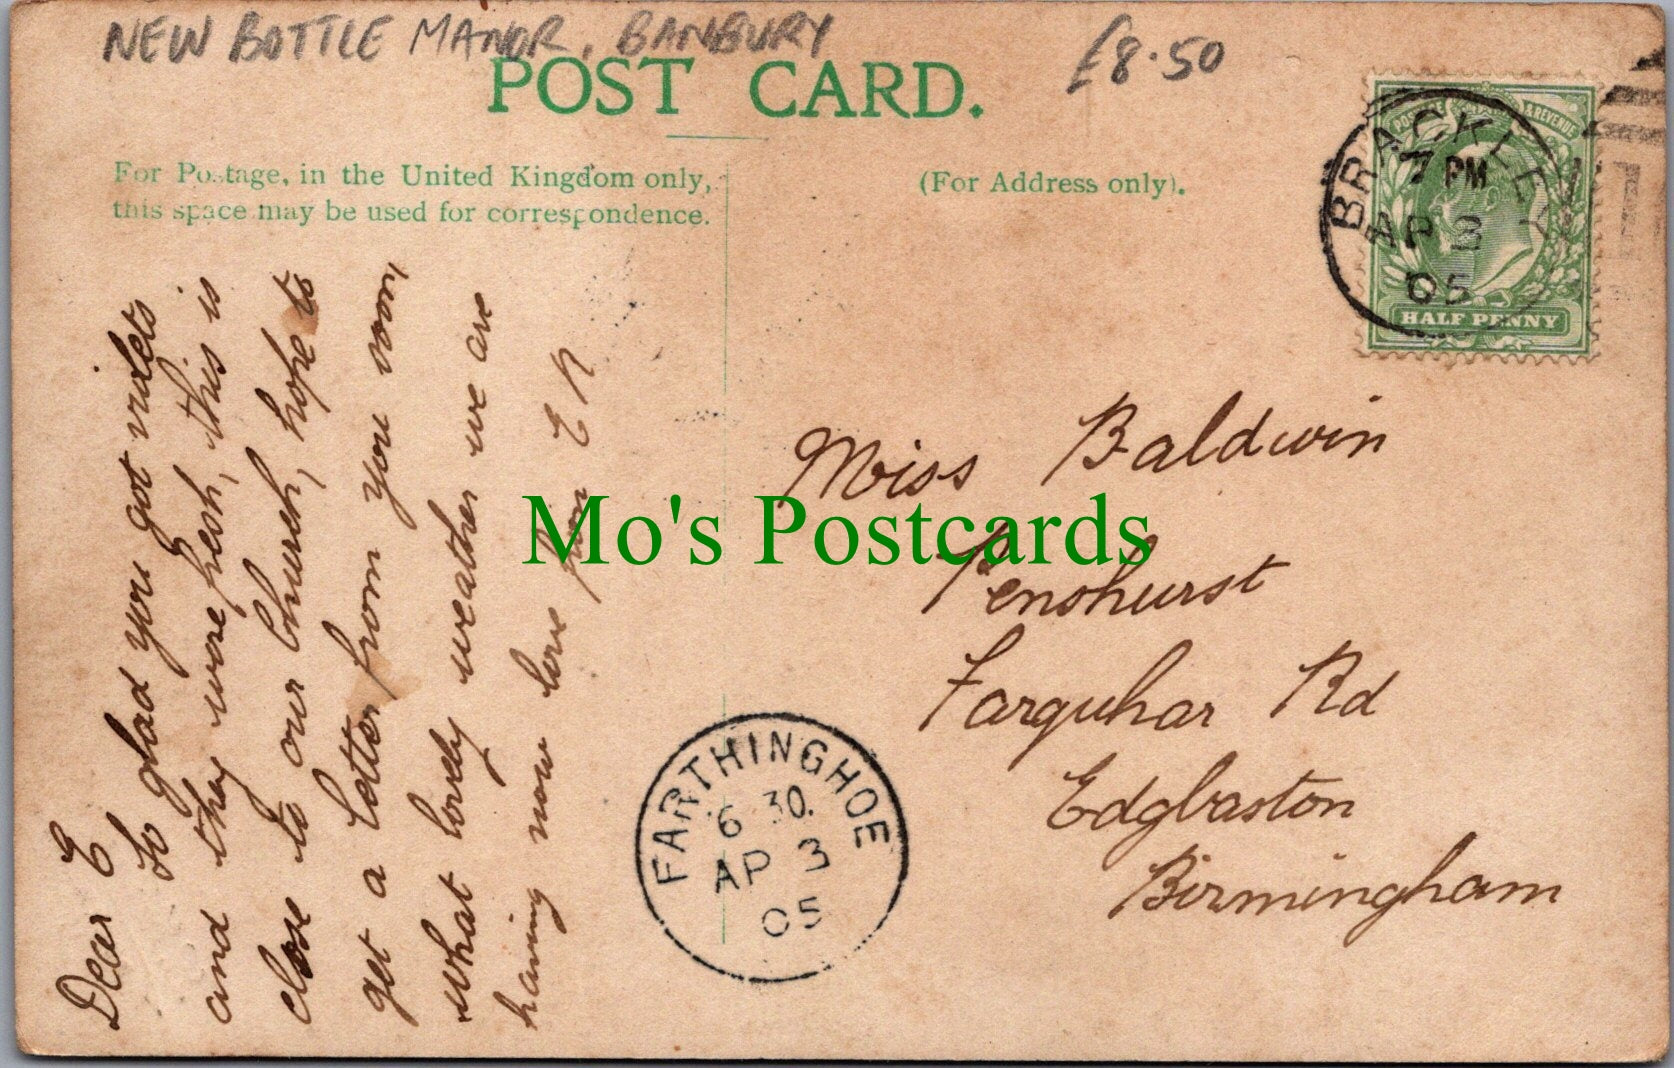 NEW BOTTLE MANOR, BANBURY
£8.50
POST CARD.
For Postage, in the United Kingdom only,
this space may be used for correspondence.
(For Address only).
POSTAGE & REVENUE
HALF PENNY
BRACKLEY
7 PM
AP 3
05
Dear E
So glad you got vilets
and they were fresh, this is
close to our Church, hope to
get a letter from you soon,
what lovely weather we are
having now love from E R
Miss Baldwin
Penshurst
Farquhar Rd
Edgbaston
Birmingham
FARTHINGHOE
6 30.
AP 3
05
Mo's Postcards